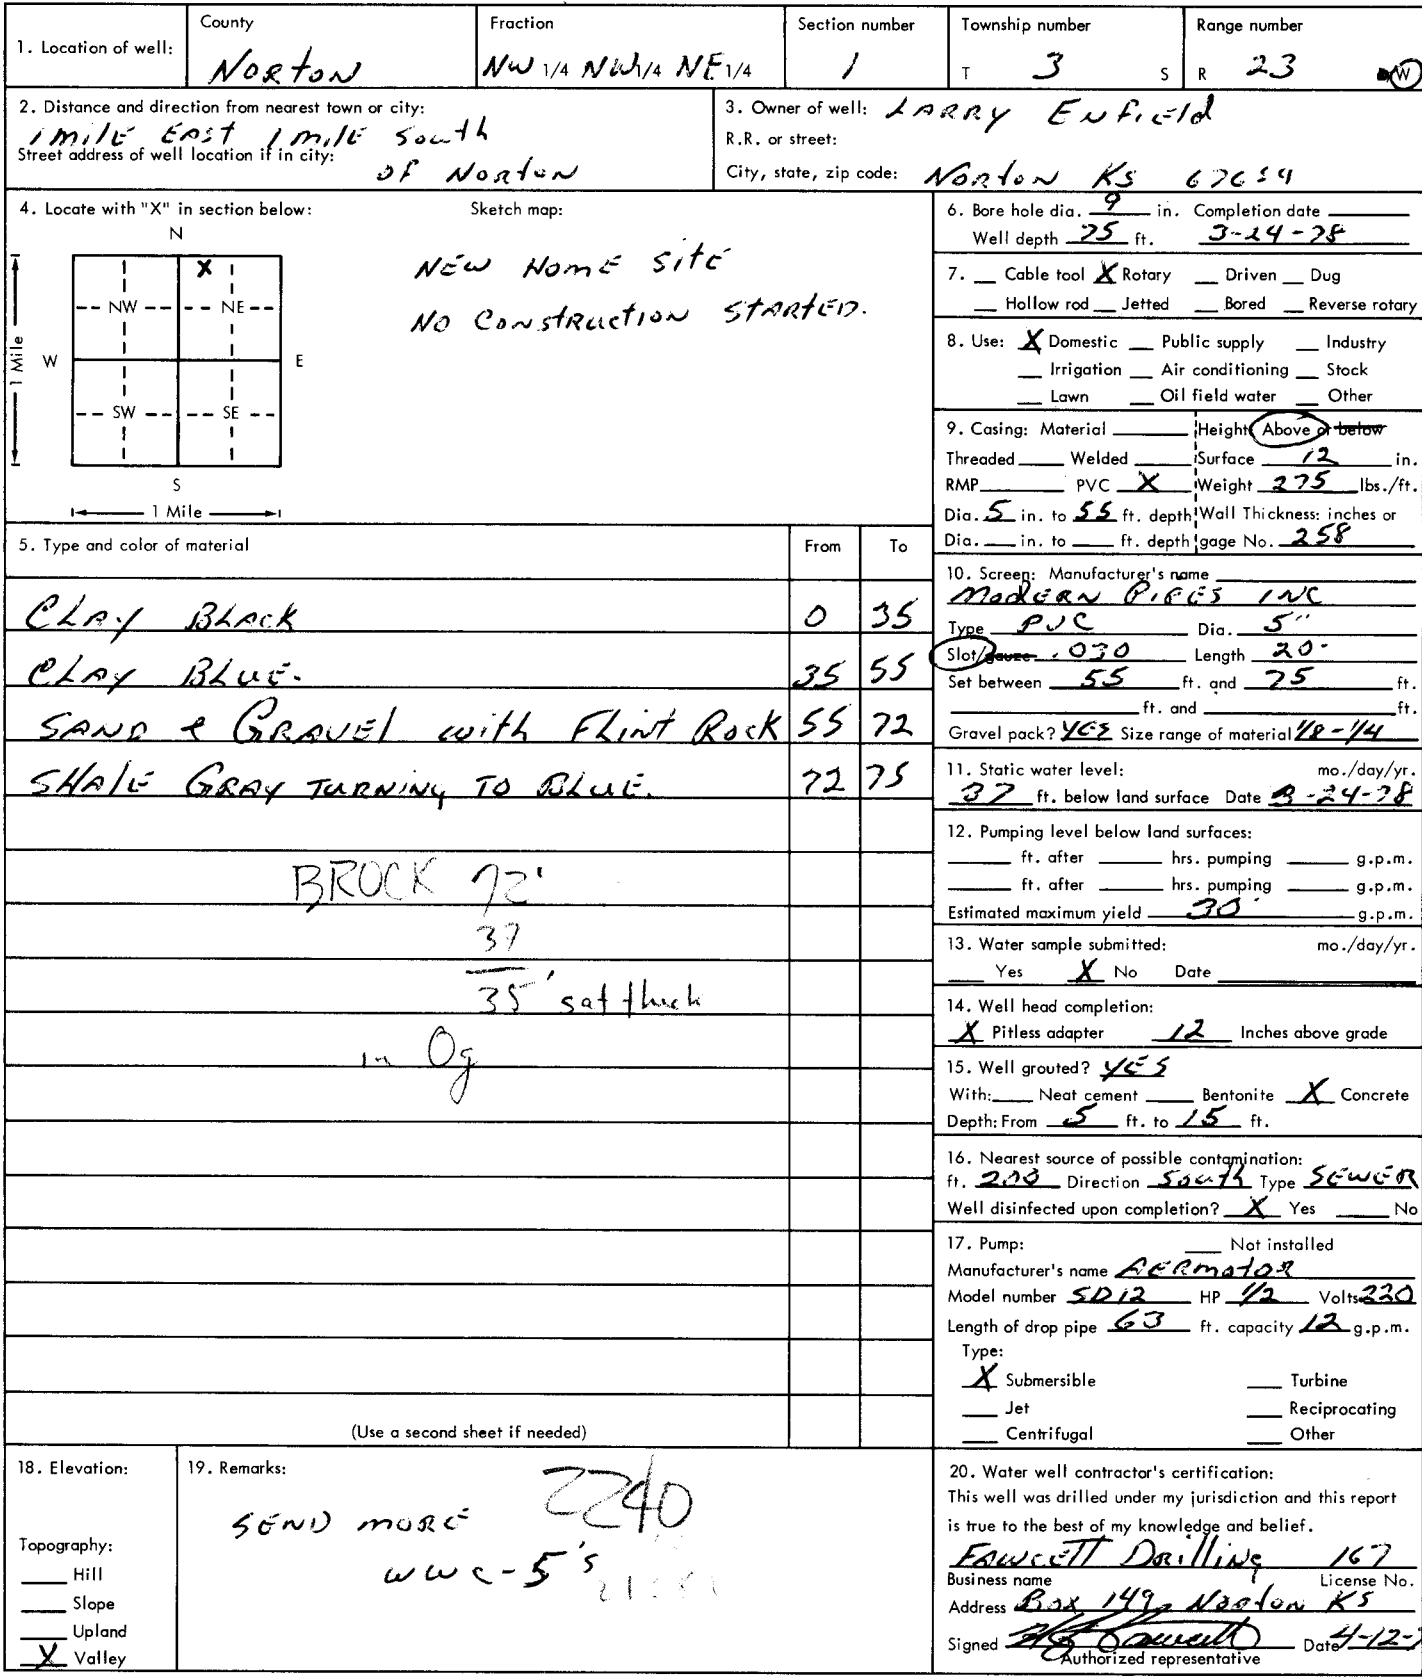 1. Location of well:
County
Norton
Fraction
NW 1/4 NW 1/4 NE 1/4
Section number
1
Township number
T 3 S
Range number
R 23 W
2. Distance and direction from nearest town or city:
1 mile East 1 mile South
Street address of well location if in city:
of Norton
3. Owner of well: Larry Enfield
R.R. or street:
City, state, zip code: Norton KS 67654
4. Locate with "X" in section below:
N
X
NW NE
W E
SW SE
S
1 Mile
1 Mile
Sketch map:
New Home Site
No Construction Started.
5. Type and color of material From To
Clay Black 0 35
Clay Blue. 35 55
Sand & Gravel with Flint Rock 55 72
Shale Gray Turning To Blue. 72 75
BROCK 72'
37
35' sat thick
in Og
(Use a second sheet if needed)
6. Bore hole dia. 9 in. Completion date
Well depth 75 ft. 3-24-78
7. Cable tool X Rotary Driven Dug
Hollow rod Jetted Bored Reverse rotary
8. Use: X Domestic Public supply Industry
Irrigation Air conditioning Stock
Lawn Oil field water Other
9. Casing: Material Height Above or below
Threaded Welded Surface 12 in.
RMP PVC X Weight 275 lbs./ft.
Dia. 5 in. to 55 ft. depth Wall Thickness: inches or
Dia. in. to ft. depth gage No. 258
10. Screen: Manufacturer's name
Modern Pipes Inc
Type PVC Dia. 5"
Slot/gauze .030 Length 20'
Set between 55 ft. and 75 ft.
ft. and ft.
Gravel pack? Yes Size range of material 1/8-1/4
11. Static water level: mo./day/yr.
37 ft. below land surface Date 3-24-78
12. Pumping level below land surfaces:
ft. after hrs. pumping g.p.m.
ft. after hrs. pumping g.p.m.
Estimated maximum yield 30 g.p.m.
13. Water sample submitted: mo./day/yr.
Yes X No Date
14. Well head completion:
X Pitless adapter 12 Inches above grade
15. Well grouted? Yes
With: Neat cement Bentonite X Concrete
Depth: From 5 ft. to 15 ft.
16. Nearest source of possible contamination:
ft. 200 Direction South Type Sewer
Well disinfected upon completion? X Yes No
17. Pump: Not installed
Manufacturer's name Aermotor
Model number SD12 HP 1/2 Volts 220
Length of drop pipe 63 ft. capacity 12 g.p.m.
Type:
X Submersible Turbine
Jet Reciprocating
Centrifugal Other
18. Elevation:
Topography:
Hill
Slope
Upland
X Valley
19. Remarks:
2240
Send more
WWC-5's
20. Water well contractor's certification:
This well was drilled under my jurisdiction and this report
is true to the best of my knowledge and belief.
Fawcett Drilling 167
Business name License No.
Address Box 149, Norton KS
Signed Fawcett Date 4-12-7
Authorized representative